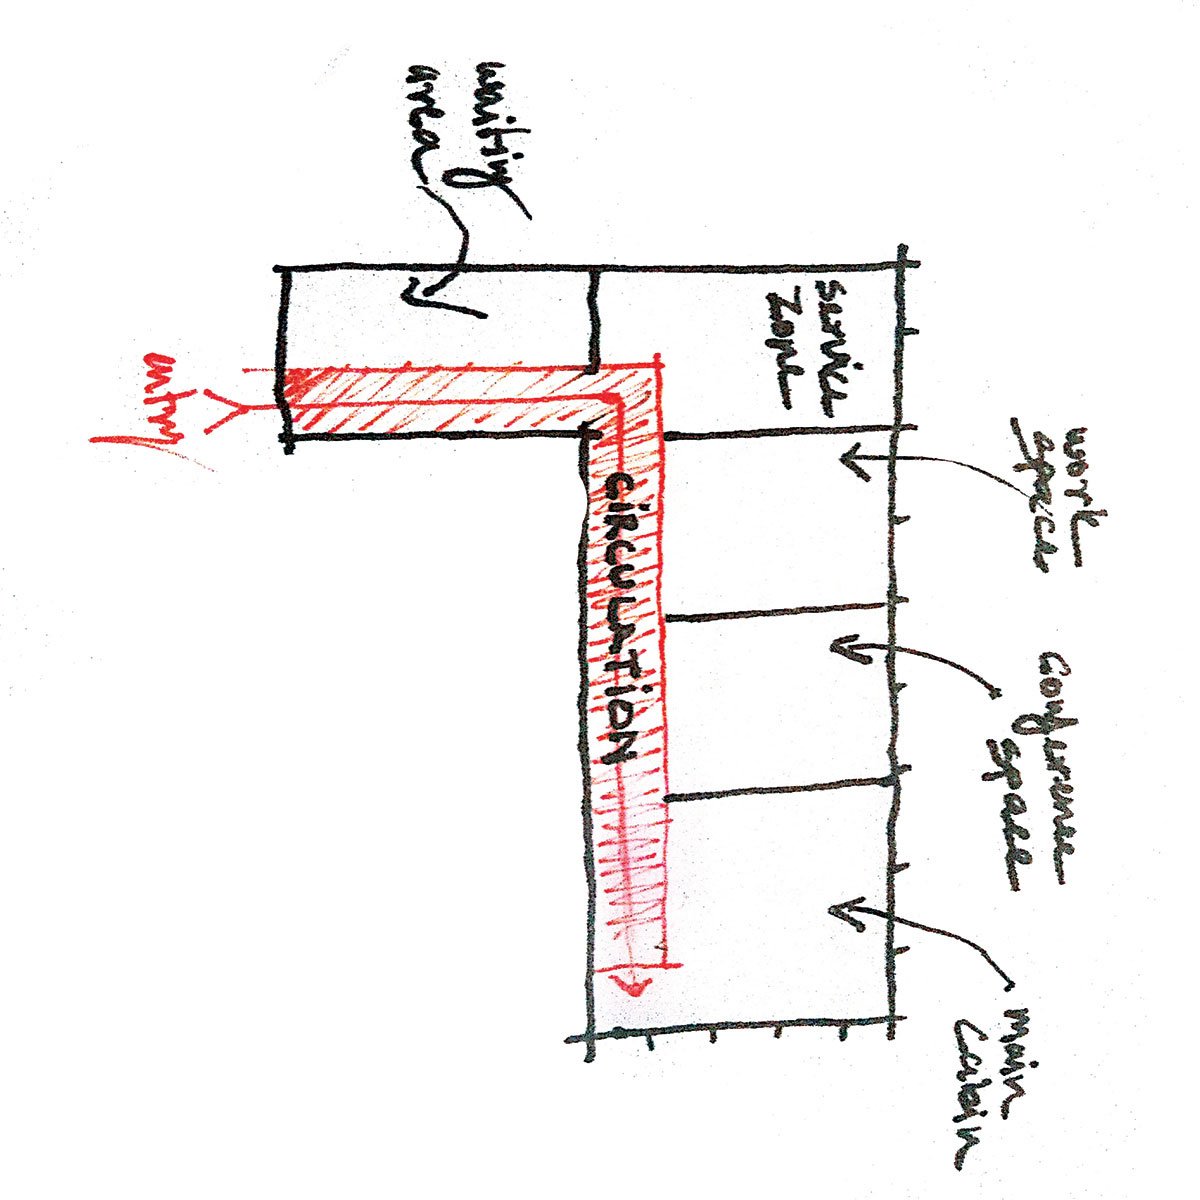 waiting
area
service
zone
work
space
Conference
space
main
cabin
CIRCULATION
entry